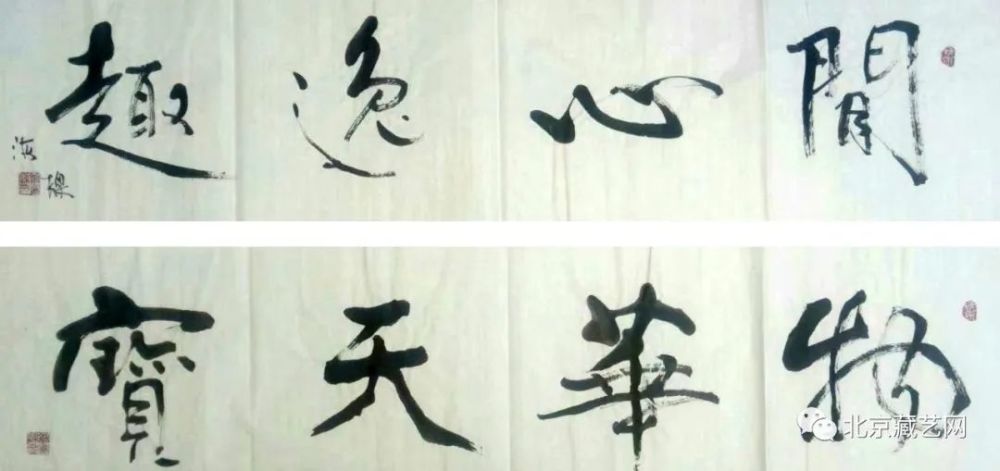 閒心逸趣
物華天寶
北京藏艺网